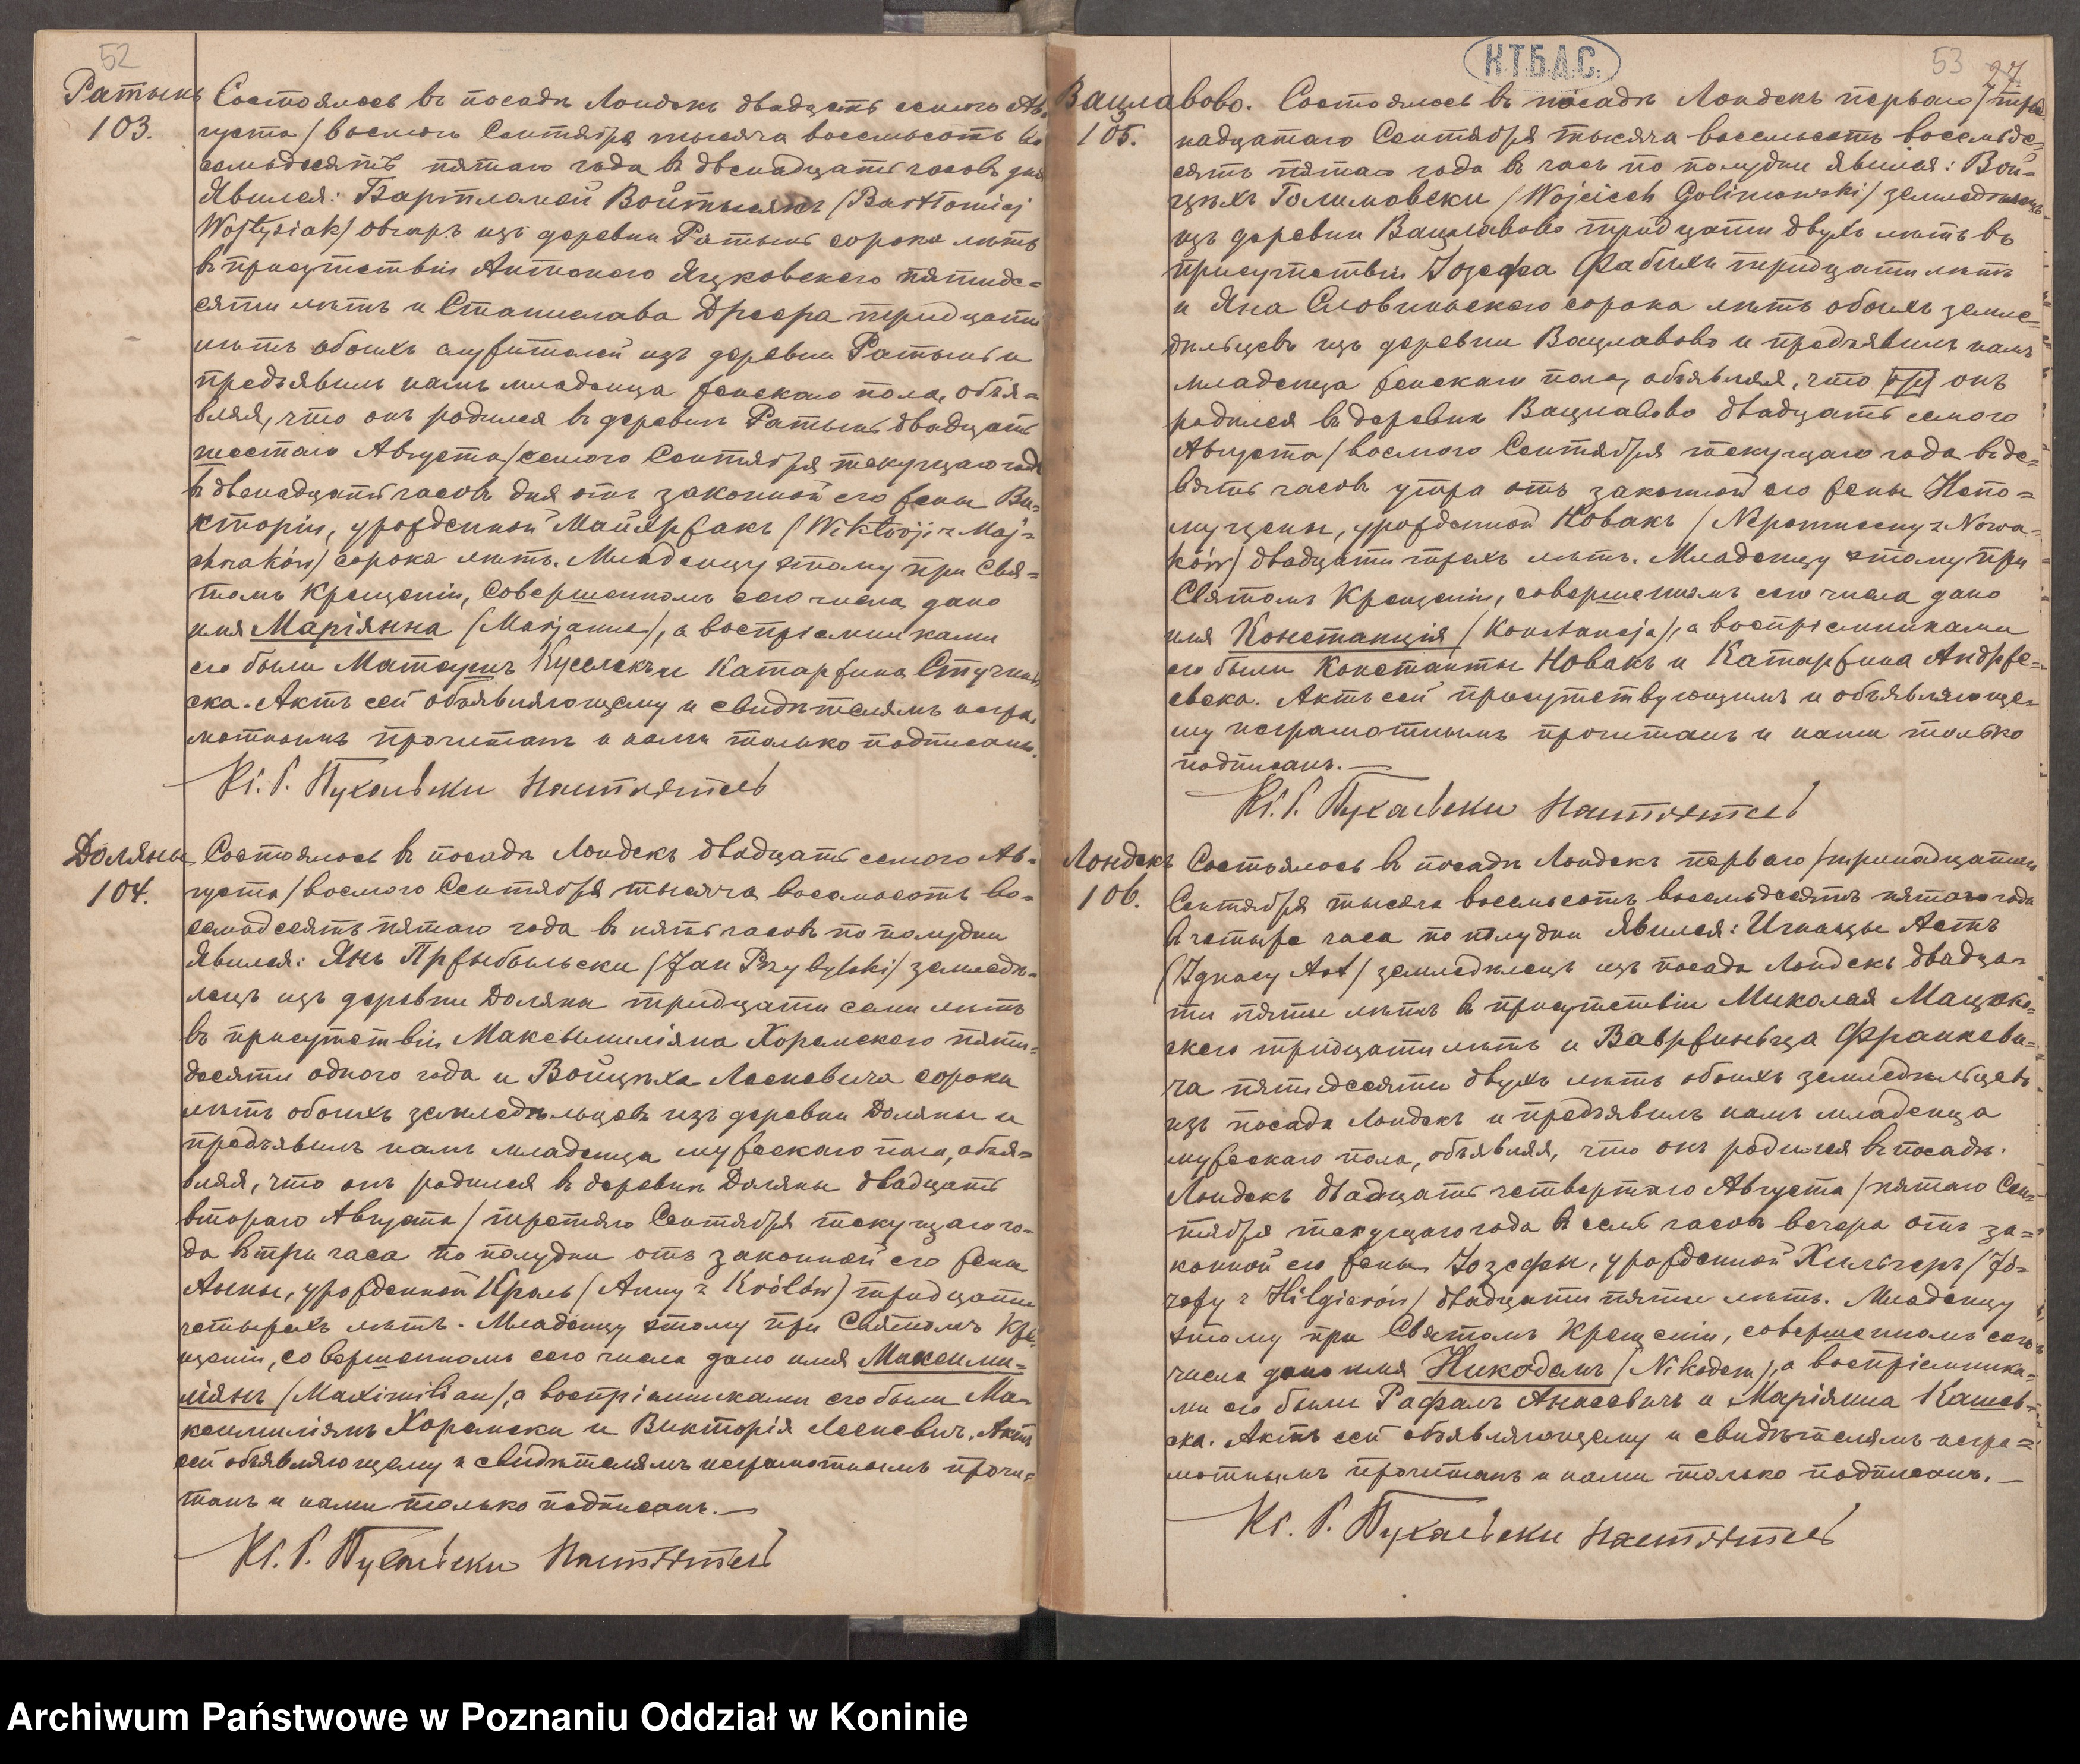 52
Ратынь Состоялось въ посадѣ Лондекъ двадцать седьмого Ав-
103. густа / восьмого Сентября тысяча восемьсотъ во
семьдесятъ пятаго года въ двенадцать часовъ дня
Явился: Бартломей Войтысякъ (Bartłomiej
Wojtysiak) овчаръ изъ деревни Ратынь сорока лѣтъ
въ присутствіи Антонего Яцковскего пятиде=
сяти лѣтъ и Станислава Дресра тридцати
лѣтъ обоихъ служителей изъ деревни Ратынь и
предъявилъ намъ младенца женскаго пола, объя=
вляя, что онъ родился въ деревнѣ Ратынь двадцать
шестаго Августа / седьмого Сентября текущаго года
въ двенадцать часовъ дня отъ законной его жены Ви=
кторіи, урожденной Майхржакъ (Wiktorji z Maj=
chrzaków) сорока лѣтъ. Младенцу этому при Свя=
томъ Крещеніи, совершенномъ сего числа, дано
имя Маріянна (Marjanna), а воспріемниками
его были Матеушъ Куселекъ и Катаржина Стучин
ска. Актъ сей объявляющему и свидѣтелямъ негра-
мотнымъ прочитанъ и нами только подписанъ.
Кс. Г. Пухальски Настоятель
Доляны Состоялось въ посадѣ Лондекъ двадцать седьмого Ав=
104. густа / восьмого Сентября тысяча восемьсотъ во=
семьдесятъ пятаго года въ пять часовъ по полудни
Явился: Янъ Пржибыльски (Jan Przybylski) земледѣ=
лецъ изъ деревни Доляны тридцати семи лѣтъ
въ присутствіи Максымиліяна Хоремского пяти=
десяти одного года и Войцѣха Лесневича сорока
лѣтъ обоихъ земледѣльцевъ изъ деревни Доляны и
предъявилъ намъ младенца мужескаго пола, объя=
вляя, что онъ родился въ деревнѣ Доляны двадцать
втораго Августа / третяго Сентября текущаго го=
да въ три часа по полудни отъ законной его жены
Анны, урожденной Кроль (Anny z Królów) тридцати
четырехъ лѣтъ. Младенцу этому при Святомъ Кре
щеніи, совершенномъ сего числа дано имя Максими=
ліянъ (Maximilian), а воспріемниками его были Ма=
ксимиліянъ Хоремски и Викторія Лесневичъ. Актъ
сей объявляющему и свидѣтелямъ неграмотнымъ прочи=
танъ и нами только подписанъ. —
Кс. Г. Пухальски Настоятель
Н.Т.Б.А.С.
53 27
Вацлавово. Состоялось въ посадѣ Лондекъ перваго / три
105. надцатаго Сентября тысяча восемьсотъ восемьде=
сятъ пятаго года въ часъ по полудни явился: Вой=
цѣхъ Голимовски (Wojciech Golimowski) земледѣлецъ
изъ деревни Вацлавово тридцати двухъ лѣтъ въ
присутствіи Іозефа Фабихъ тридцати лѣтъ
и Яна Словиньского сорока лѣтъ обоихъ земле=
дѣльцевъ изъ деревни Вацлавово и предъявилъ намъ
младенца женскаго пола, объявляя, что онъ
родился въ деревнѣ Вацлавово двадцать седьмого
Августа / восьмого Сентября текущаго года въ де=
вять часовъ утра отъ законной его жены Непо=
муцены, урожденной Новакъ (Nepomuceny z Nowa=
ków) двадцати трехъ лѣтъ. Младенцу этому при
Святомъ Крещеніи, совершенномъ сего числа дано
имя Констанція (Konstancja), а воспріемниками
его были Константы Новакъ и Катаржина Андрже=
евска. Актъ сей присутствующимъ и объявляюще=
му неграмотнымъ прочитанъ и нами только
подписанъ. —
Кс. Г. Пухальски Настоятель
Лондекъ Состоялось въ посадѣ Лондекъ перваго / тринадцатаго
106. Сентября тысяча восемьсотъ восемьдесятъ пятого года
въ четыре часа по полудни Явился: Игнацы Астъ
(Ignacy Ast) земледѣлецъ изъ посада Лондекъ двадца=
ти пяти лѣтъ въ присутствіи Миколая Мацков=
ского тридцати лѣтъ и Вавржиньца Франкеви=
ча пятидесяти двухъ лѣтъ обоихъ земледѣльцевъ
изъ посада Лондекъ и предъявилъ намъ младенца
мужескаго пола, объявляя, что онъ родился въ посадѣ
Лондекъ двадцать четвертаго Августа / пятаго Сен=
тября текущаго года въ семь часовъ вечера отъ за=
конной его жены Іозефы, урожденной Хильгеръ (Jó=
zefy z Hilgierów) двадцати пяти лѣтъ. Младенцу
этому при Святомъ Крещеніи, совершенномъ сего
числа дано имя Никодемъ (Nikodem), а воспріемника=
ми его были Рафалъ Анасевичъ и Маріянна Кашев=
ска. Актъ сей объявляющему и свидѣтелямъ негра=
мотнымъ прочитанъ и нами только подписанъ. —
Кс. Г. Пухальски Настоятель
Archiwum Państwowe w Poznaniu Oddział w Koninie